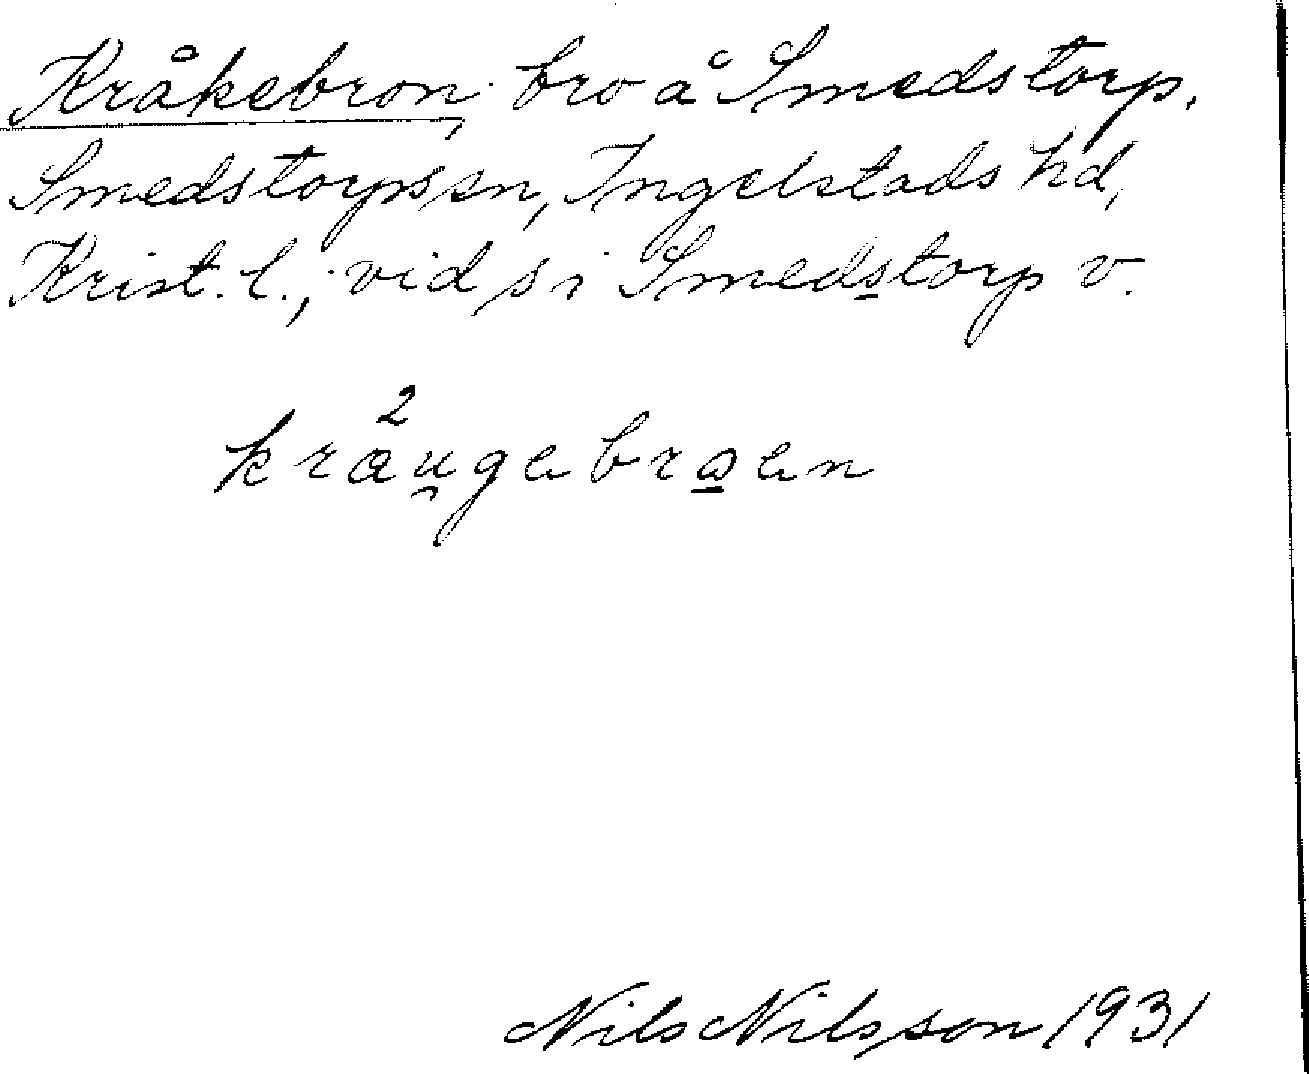 Kråkebron, bro å Smedstorp,
Smedstorps sn, Ingelstads hd,
Krist. l., vid s i Smedstorp v.
2
kräu̯gebroen
Nils Nilsson 1931